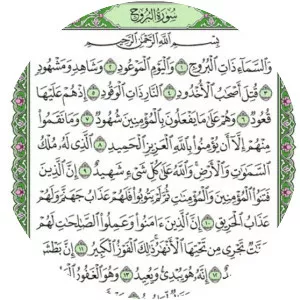 سُورَةُ البُرُوجِ
بِسْمِ اللَّهِ الرَّحْمَٰنِ الرَّحِيمِ
وَالسَّمَاءِ ذَاتِ الْبُرُوجِ ١ وَالْيَوْمِ الْمَوْعُودِ ٢ وَشَاهِدٍ وَمَشْهُودٍ
٣ قُتِلَ أَصْحَابُ الْأُخْدُودِ ٤ النَّارِ ذَاتِ الْوَقُودِ ٥ إِذْ هُمْ عَلَيْهَا
قُعُودٌ ٦ وَهُمْ عَلَىٰ مَا يَفْعَلُونَ بِالْمُؤْمِنِينَ شُهُودٌ ٧ وَمَا نَقَمُوا
مِنْهُمْ إِلَّا أَنْ يُؤْمِنُوا بِاللَّهِ الْعَزِيزِ الْحَمِيدِ ٨ الَّذِي لَهُ مُلْكُ
السَّمَاوَاتِ وَالْأَرْضِ وَاللَّهُ عَلَىٰ كُلِّ شَيْءٍ شَهِيدٌ ٩ إِنَّ الَّذِينَ
فَتَنُوا الْمُؤْمِنِينَ وَالْمُؤْمِنَاتِ ثُمَّ لَمْ يَتُوبُوا فَلَهُمْ عَذَابُ جَهَنَّمَ وَلَهُمْ
عَذَابُ الْحَرِيقِ ١٠ إِنَّ الَّذِينَ آمَنُوا وَعَمِلُوا الصَّالِحَاتِ لَهُمْ
تٌ تَجْرِي مِنْ تَحْتِهَا الْأَنْهَارُ ذَٰلِكَ الْفَوْزُ الْكَبِيرُ ١١ إِنَّ بَطْشَ
١٢ إِنَّهُ هُوَ يُبْدِئُ وَيُعِيدُ ١٣ وَهُوَ الْغَفُورُ